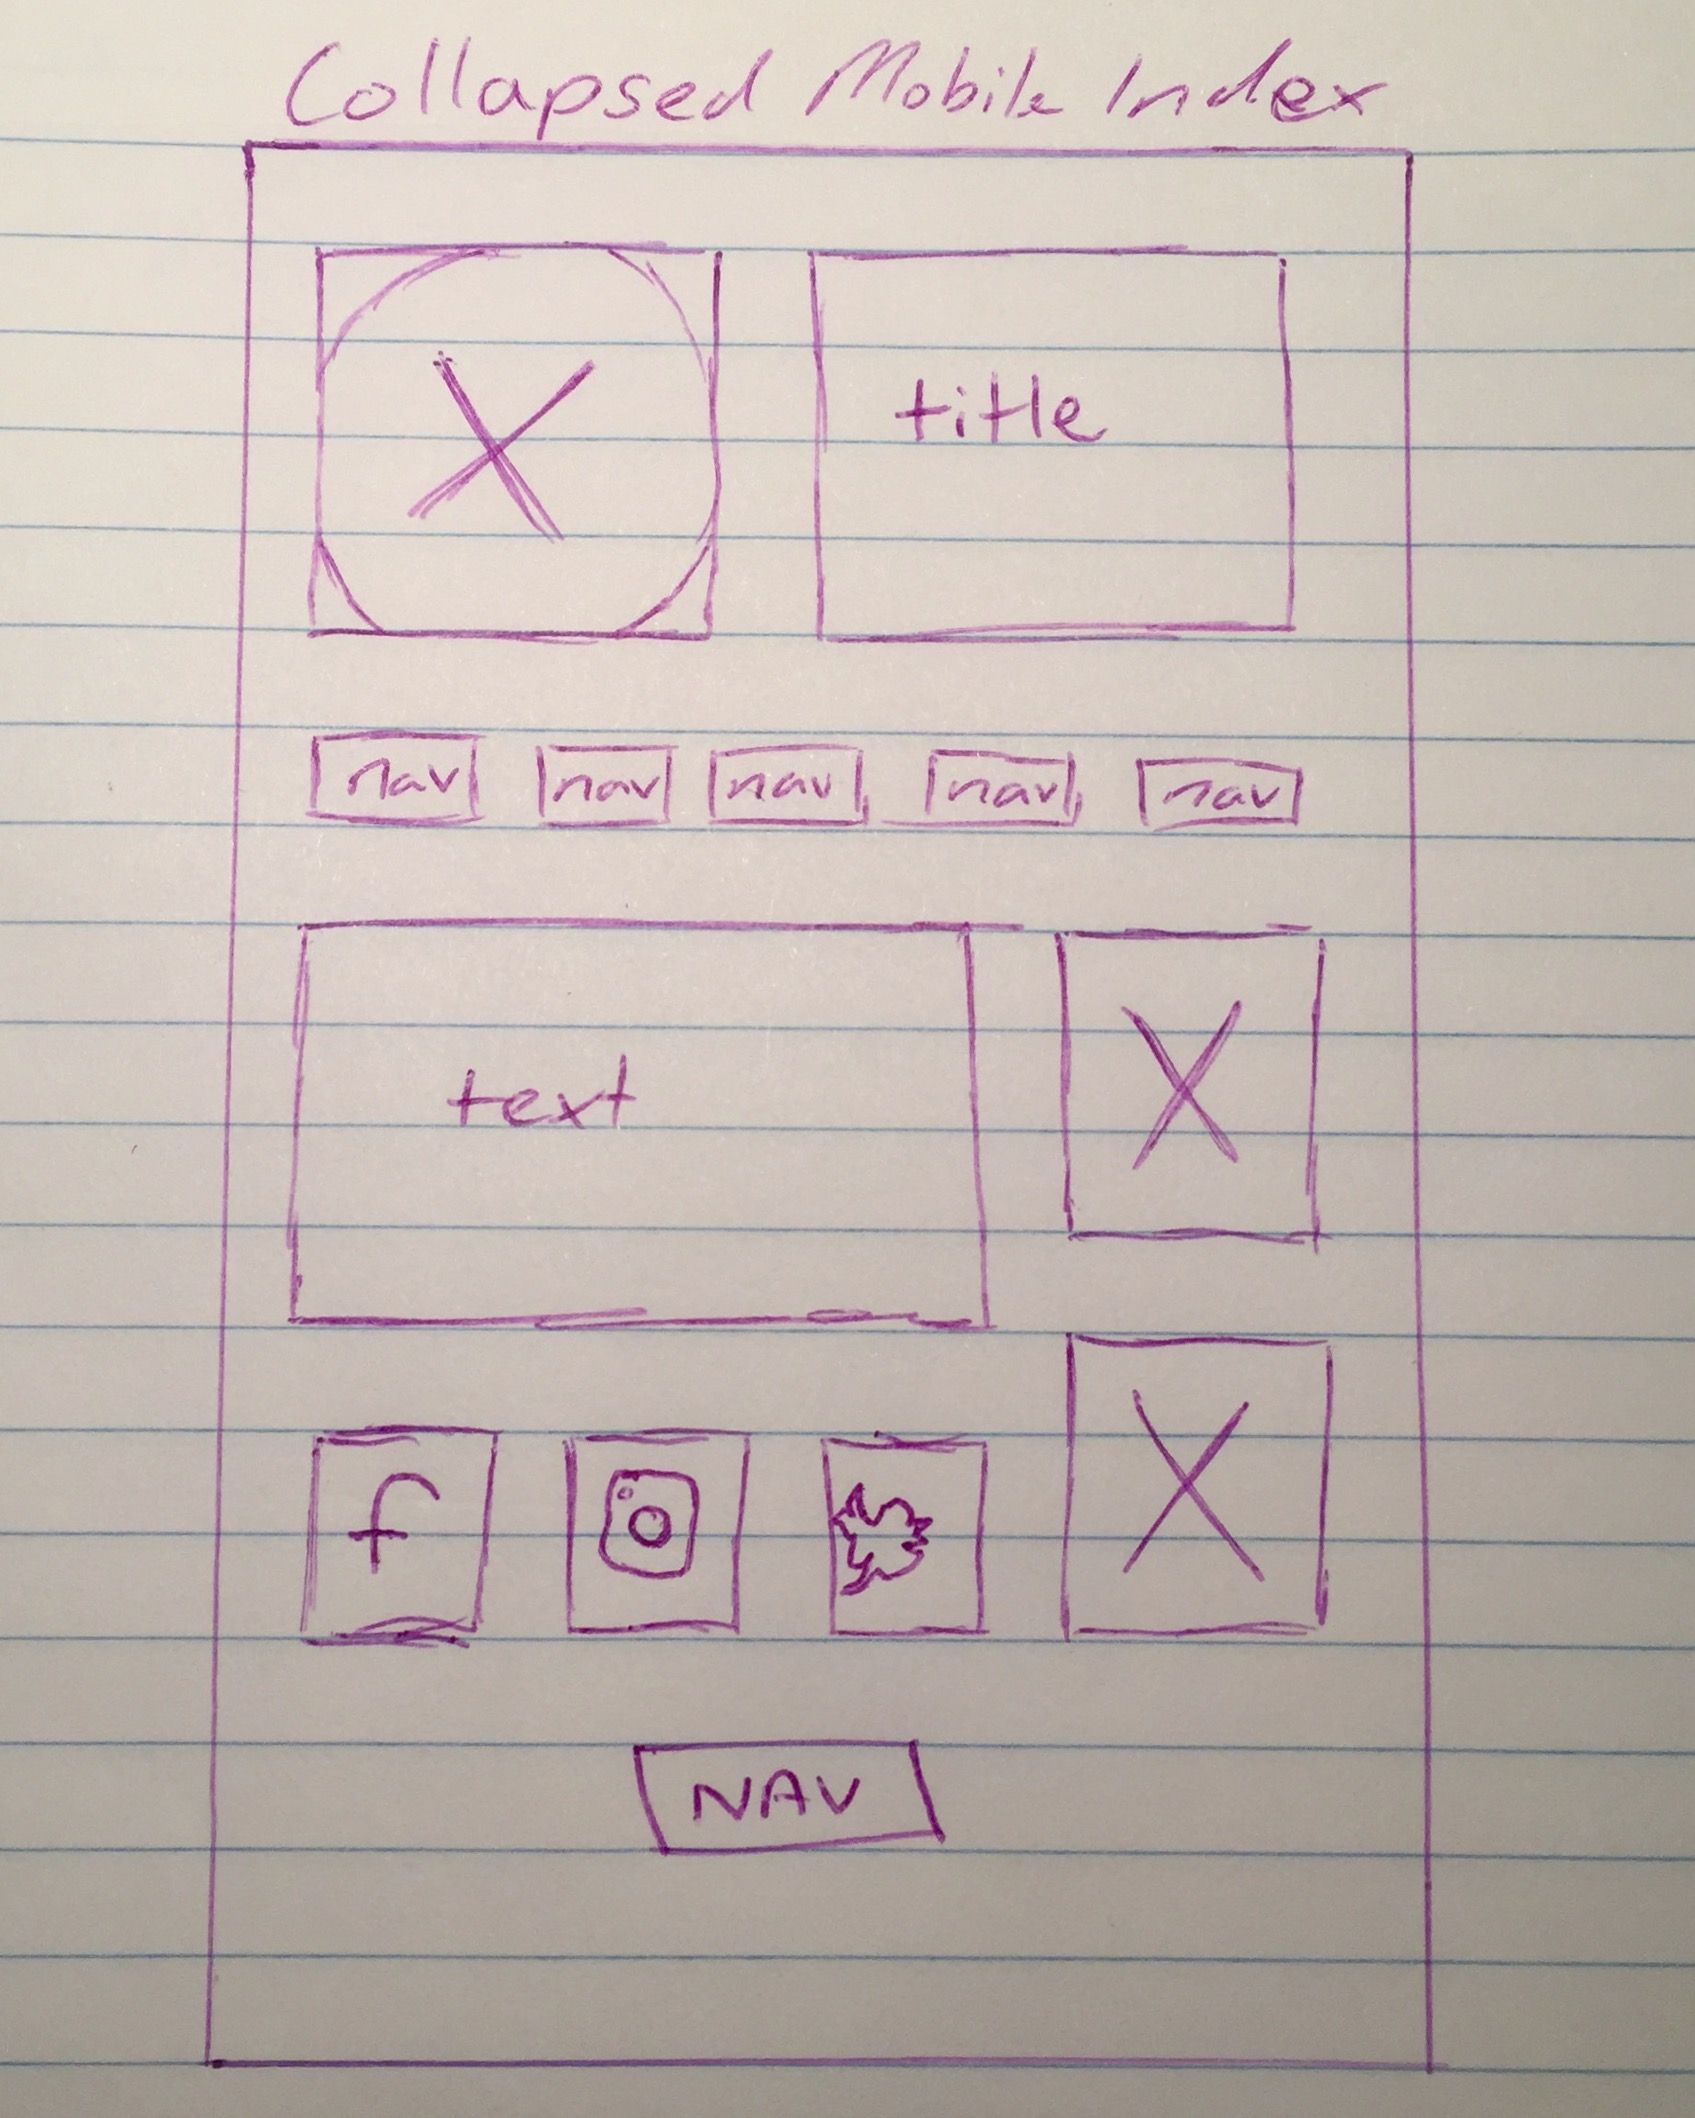 Collapsed Mobile Index
title
nav nav nav nav nav
text
f
NAV